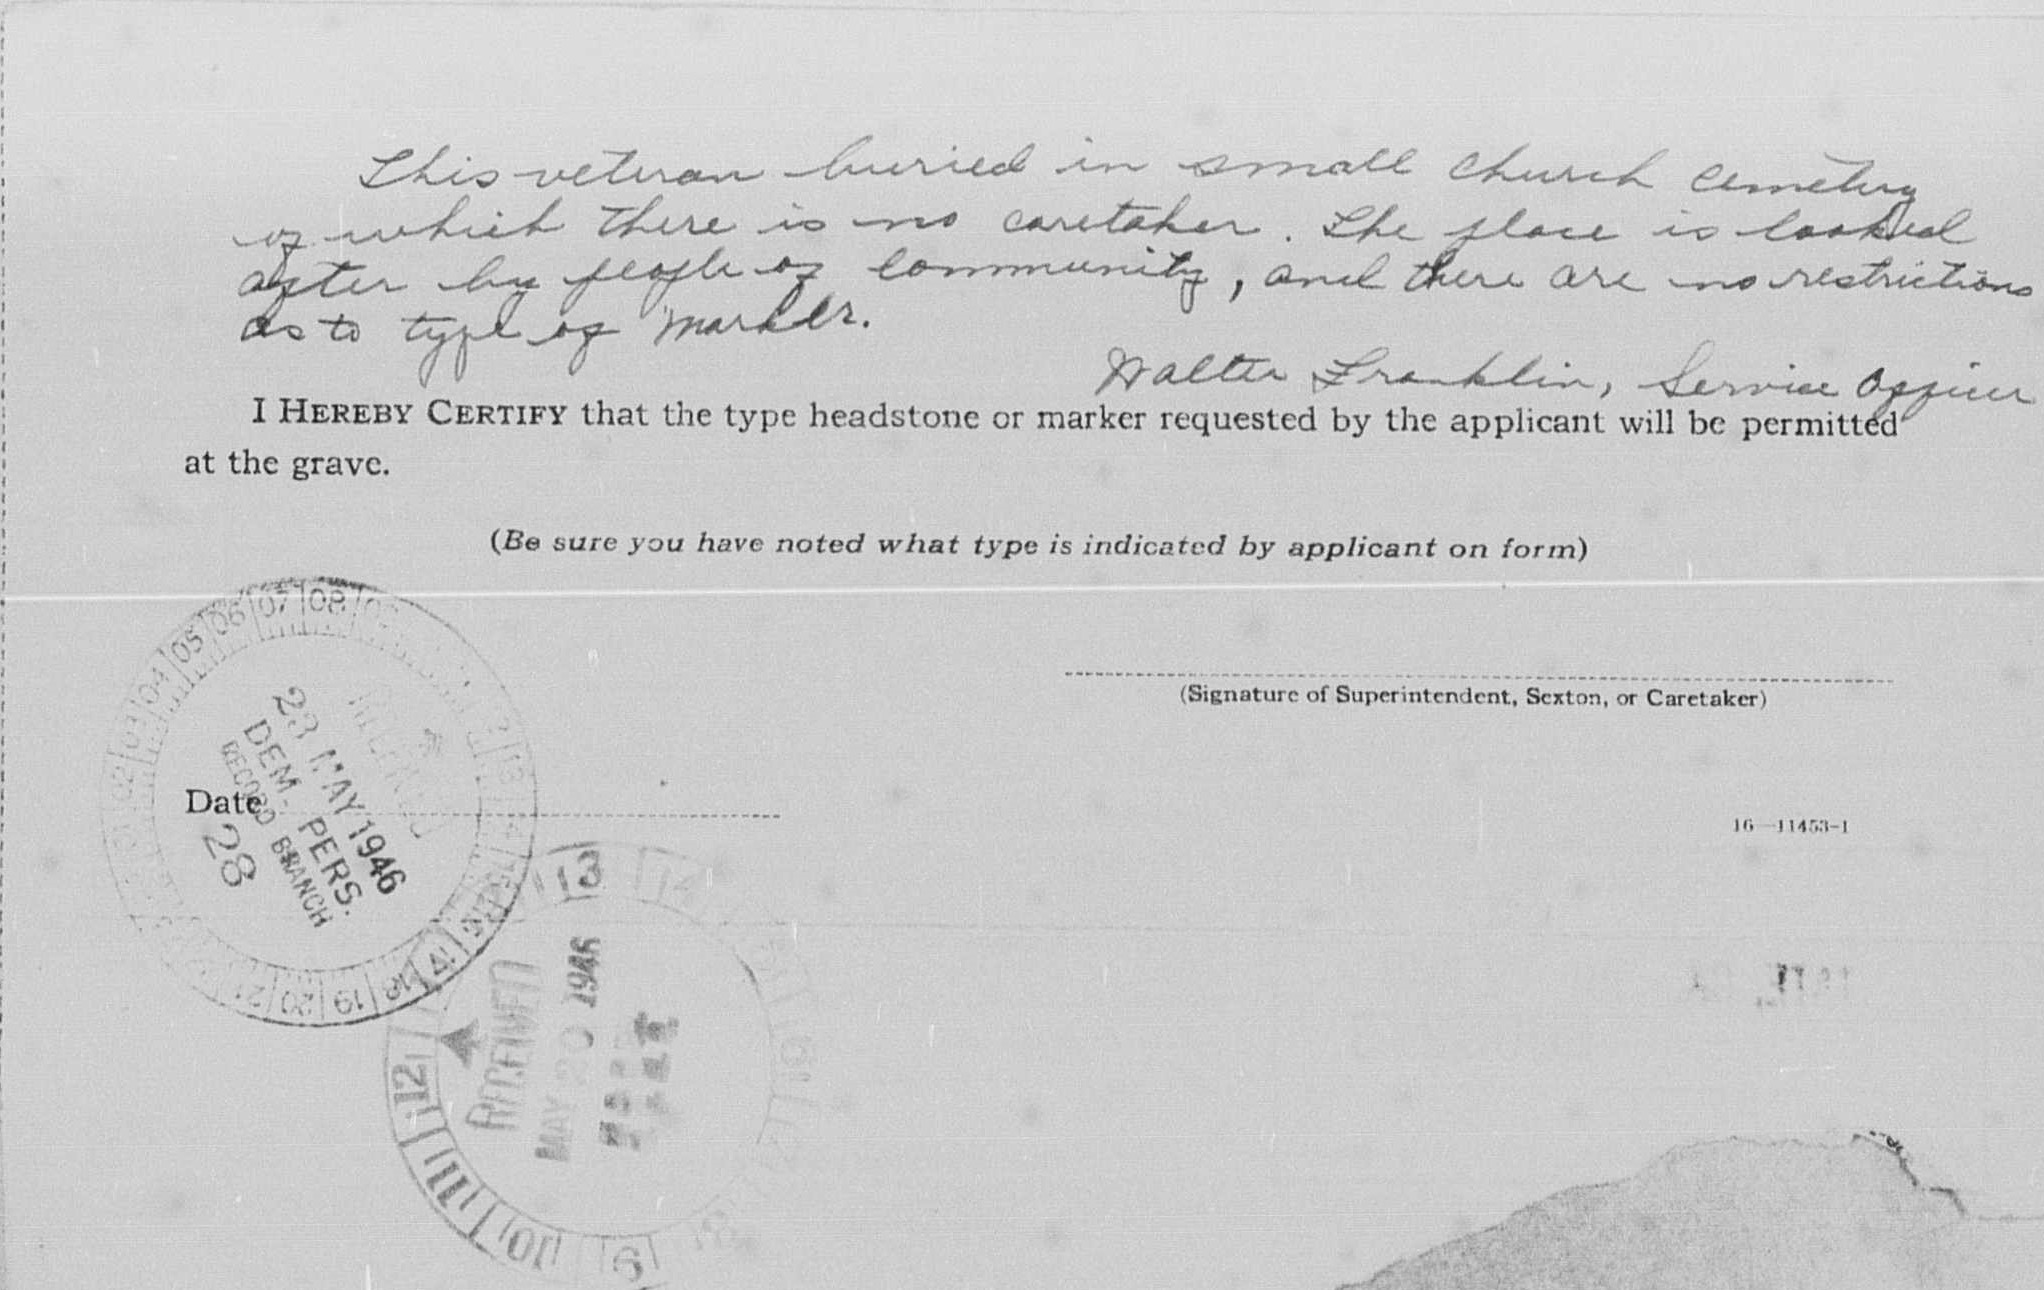 This veteran buried in small church cemetery
of which there is no caretaker. The place is looked
after by people of community, and there are no restrictions
as to type of marker.
Walter Franklin, Service Officer
I HEREBY CERTIFY that the type headstone or marker requested by the applicant will be permitted
at the grave.
(Be sure you have noted what type is indicated by applicant on form)
(Signature of Superintendent, Sexton, or Caretaker)
Date
16—11453-1
02 03 04 05 06 07 08
RECEIVED
23 MAY 1946
DEM. PERS.
RECORD BRANCH
28
16 17 18 19 20 21
13 14
RECEIVED
MAY 20 1946
12 11 10 9